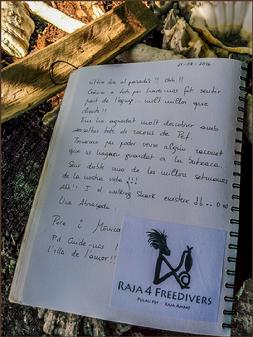 últim dia al paradís!! Ohh!!
Gràcies a tots per haver-nos fet sentir
part de l'equip... molt millor que
clients!!
Ens ha agradat molt descobrir amb
vosaltres tots els racons de Pef.
Tornarem per poder veure algun racó
que us hagueu guardat a la butxaca.
Sens dubte una de les millors setmanes
de la nostra vida!!!
Ahh!! I el walking Shark existeix
Una Abraçada
Pere i Mònica
Pd Cuide-nos
l'illa de l'amor!!
RAJA 4 FREEDIVERS
PULAU PEF · RAJA AMPAT